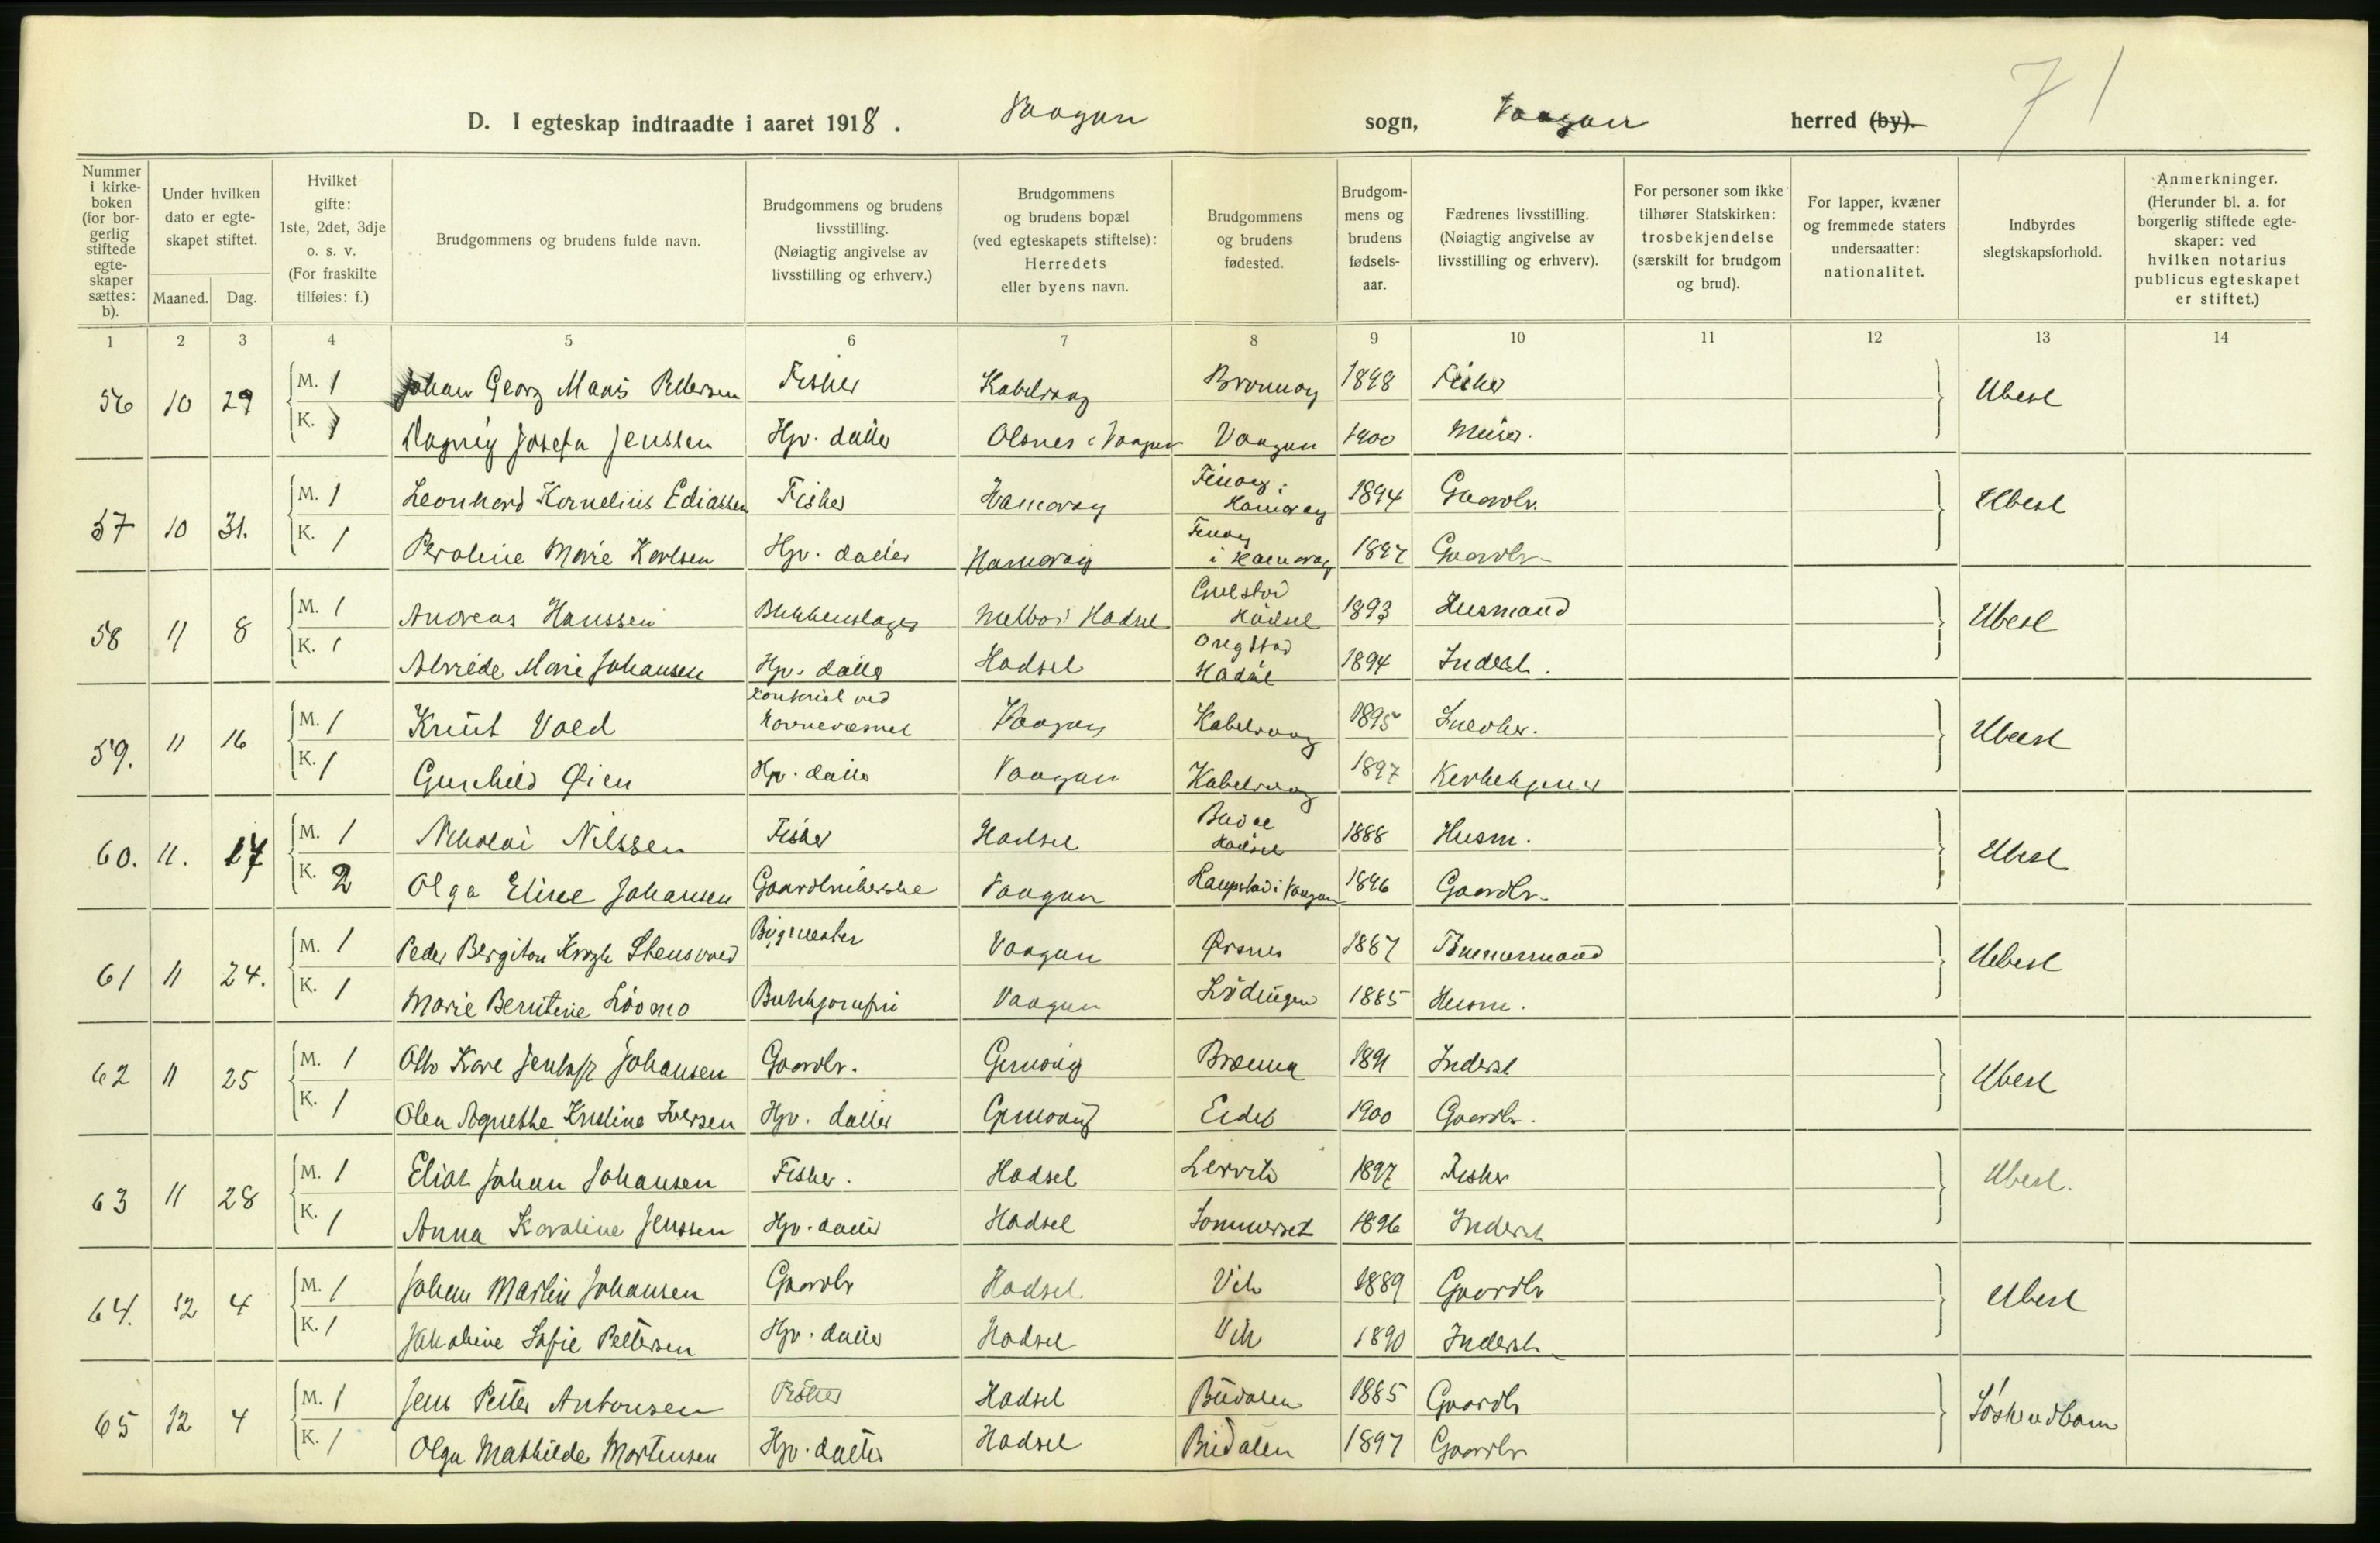 71
D. I egteskap indtraadte i aaret 1918. Vaagan sogn, Vaagan herred (by).
Nummer i kirkeboken (for borgerlig stiftede egteskaper sættes: b).
Under hvilken dato er egteskapet stiftet.
Maaned. Dag.
Hvilket gifte: 1ste, 2det, 3dje o. s. v. (For fraskilte tilføies: f.)
Brudgommens og brudens fulde navn.
Brudgommens og brudens livsstilling. (Nøiagtig angivelse av livsstilling og erhverv.)
Brudgommens og brudens bopæl (ved egteskapets stiftelse): Herredets eller byens navn.
Brudgommens og brudens fødested.
Brudgommens og brudens fødselsaar.
Fædrenes livsstilling. (Nøiagtig angivelse av livsstilling og erhverv).
For personer som ikke tilhører Statskirken: trosbekjendelse (særskilt for brudgom og brud).
For lapper, kvæner og fremmede staters undersaatter: nationalitet.
Indbyrdes slegtskapsforhold.
Anmerkninger. (Herunder bl. a. for borgerlig stiftede egteskaper: ved hvilken notarius publicus egteskapet er stiftet.)
1 2 3 4 5 6 7 8 9 10 11 12 13 14
56 10 29 M. 1 Johan Georg Maas Pettersen Fisker Kabelvaag Brønnøy 1898 Fisker Ubesl
K. 1 Dagny Josefa Jenssen Hjv. datter Olsnes i Vaagan Vaagan 1900 Murer.
57 10 31. M. 1 Leonhard Kornelius Ediassen Fisker Hamarøy Finøy i Hamarøy 1894 Gaardbr. Ubesl
K. 1 Peroline Marie Karlsen Hjv. datter Hamarøy Finøy i Hamarøy 1897 Gaardbr.
58 11 8 M. 1 Andreas Hanssen Blikkenslager Melbo i Hadsel Gulstad Hadsel 1893 Husmand Ubesl
K. 1 Alvilde Marie Johansen Hjv. datter Hadsel Hadsel 1894 Inderst.
59. 11 16 M. 1 Knut Vold Kontorist ved Havnevæsnet Vaagan Kabelvaag 1895 Snedker. Ubesl
K. 1 Gunhild Øien Hjv. datter Vaagan Kabelvaag 1897 Kirketjener
60. 11. 17 M. 1 Nikolai Nilssen Fisker Hadsel Budal Hadsel 1888 Husm. Ubesl
K. 2 Olga Elise Johansen Gaardbrukerske Vaagan Haupstad i Vaagan 1896 Gaardbr.
61 11 24. M. 1 Peder Bergiton Krogh Stensvold Bygmester Vaagan Ørsnes 1887 Tømmermand Ubesl
K. 1 Marie Berntine Lødingen Vaagan 1885 Husm.
62 11 25 M. 1 Otto Kare Jentoft Johansen Gaardbr. Gimsøy Brenna 1891 Inderst Ubesl
K. 1 Olea Agnethe Kristine Iversen Hjv. datter Gimsøy Eidet 1900 Gaardbr.
63 11 28 M. 1 Elias Johan Johansen Fisker. Hadsel Lervik 1897 Fisker Ubesl.
K. 1 Anna Karoline Jenssen Hjv. datter Hadsel Sommerset 1896 Inderst
64. 12 4 M. 1 Johan Martin Johansen Gaardbr Hadsel Vik 1889 Gaardbr Ubesl
K. 1 Jakobine Sofie Pettersen Hjv. datter Hadsel Vik 1890 Inderst
65 12 4 M. 1 Jens Petter Antonsen Fisker Hadsel Budalen 1885 Gaardbr Søskendbarn
K. 1 Olga Mathilde Mortensen Hjv. datter Hadsel Budalen 1897 Gaardbr